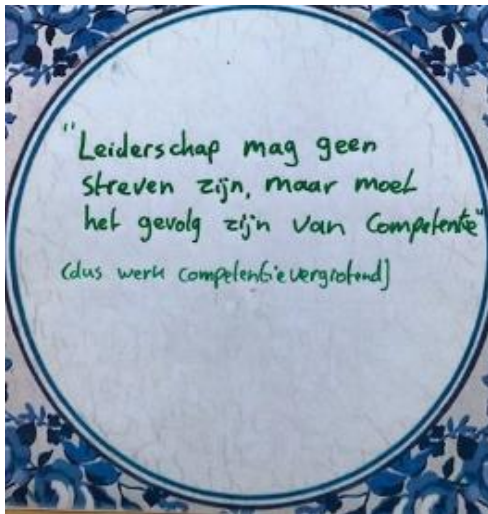 "Leiderschap mag geen
streven zijn, maar moet
het gevolg zijn van Competentie"
(dus werk competentievergrotend)